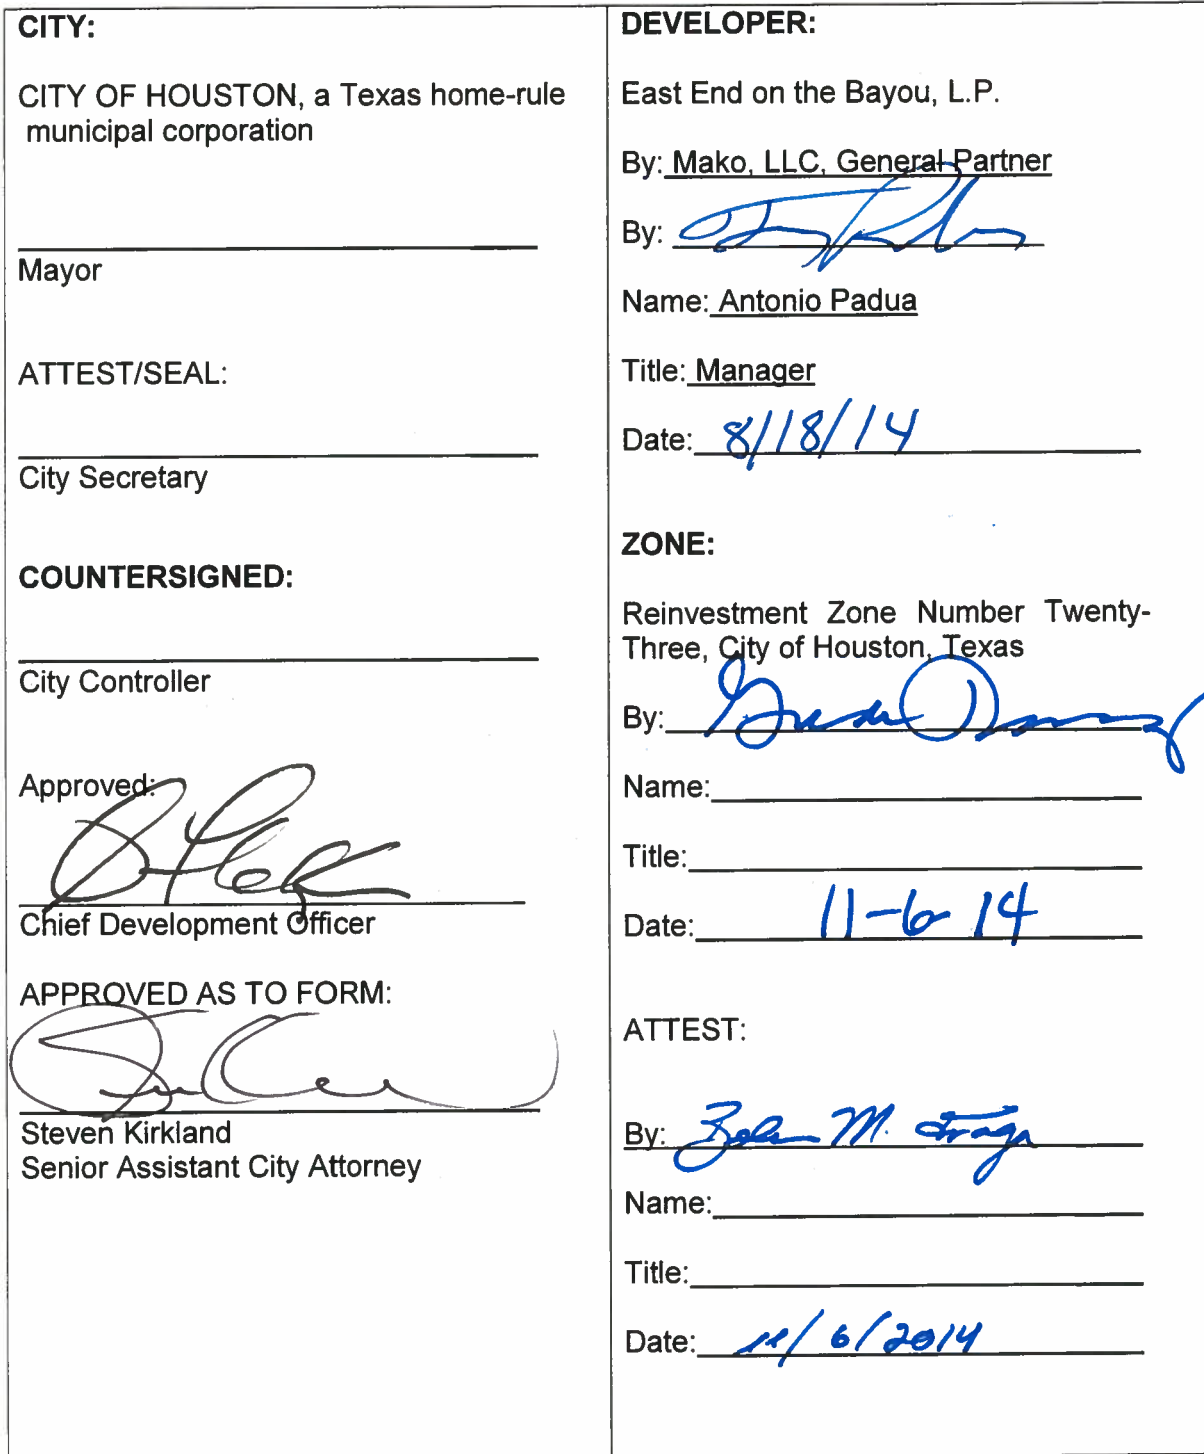 CITY:
CITY OF HOUSTON, a Texas home-rule
municipal corporation
Mayor
ATTEST/SEAL:
City Secretary
COUNTERSIGNED:
City Controller
Approved:
Chief Development Officer
APPROVED AS TO FORM:
Steven Kirkland
Senior Assistant City Attorney
DEVELOPER:
East End on the Bayou, L.P.
By: Mako, LLC, General Partner
By:
Name: Antonio Padua
Title: Manager
Date: 8/18/14
ZONE:
Reinvestment Zone Number Twenty-
Three, City of Houston, Texas
By:
Name:
Title:
Date: 11-6-14
ATTEST:
By: M.
Name:
Title:
Date: 11/6/2014